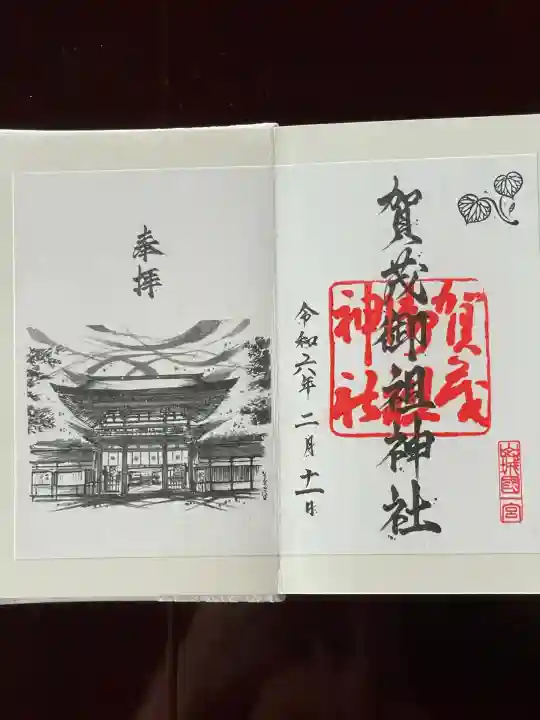 賀茂御祖神社
賀茂
御祖
神社
山城國
一宮
令和六年 二月 十一日
奉拝